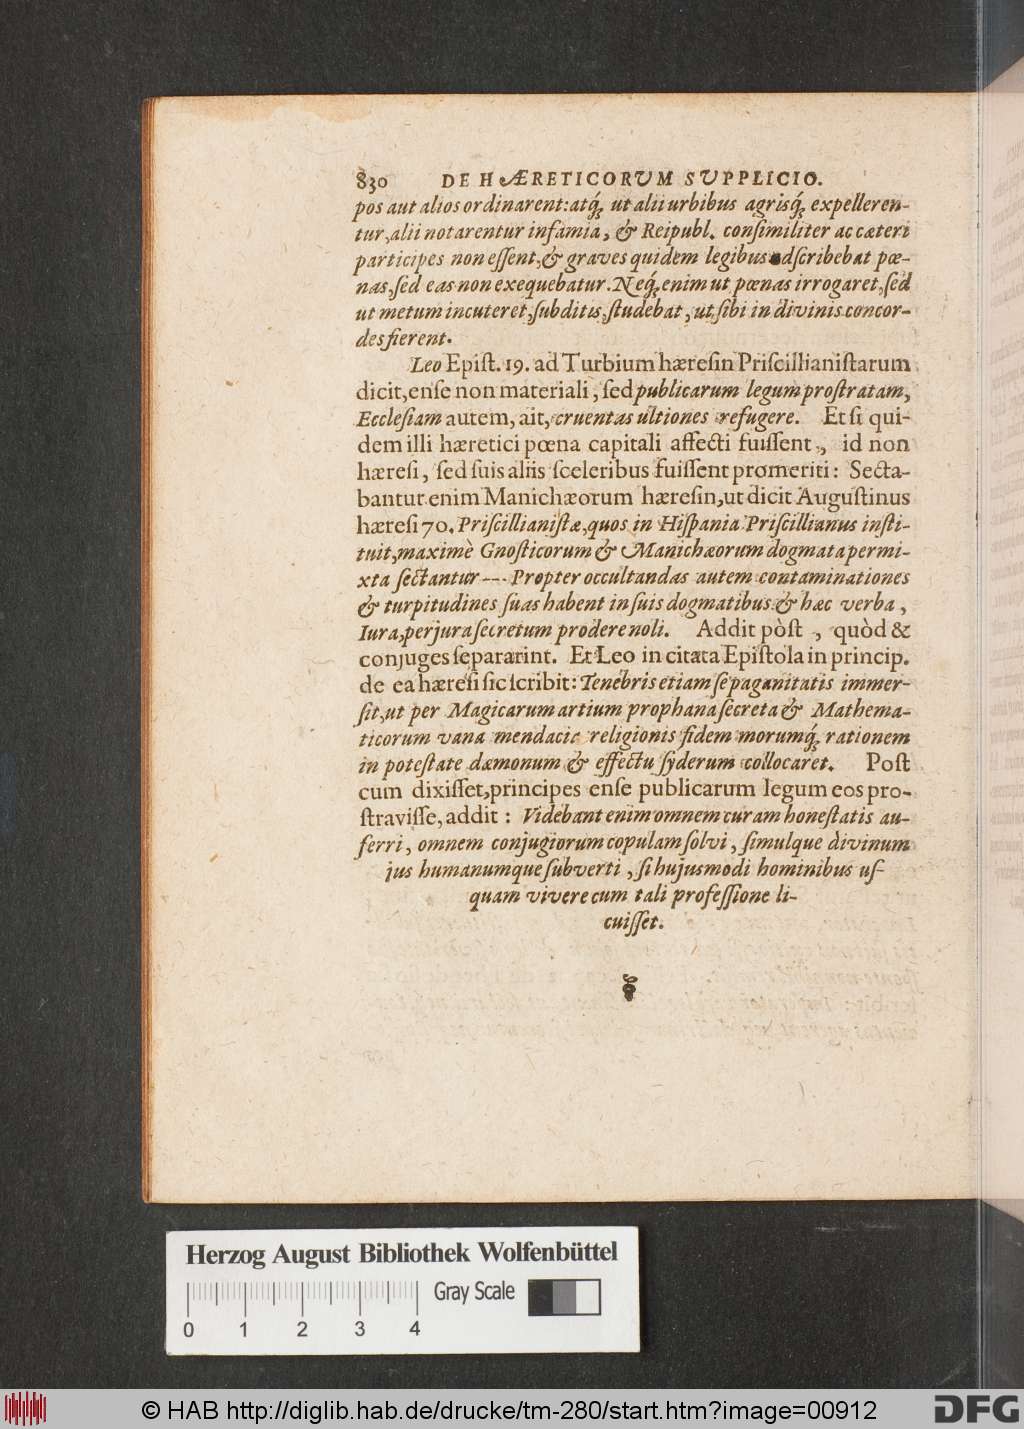 830 DE HÆRETICORVM SVPPLICIO.
pos aut alios ordinarent: atq́; ut alii urbibus agrisq́; expelleren-
tur, alii notarentur infamia, & Reipubl. conſimiliter ac cæteri
participes non eſſent, & graves quidem legibus adſcribebat pœ-
nas, ſed eas non exequebatur. Neq́; enim ut pœnas irrogaret, ſed
ut metum incuteret, ſubditis, ſtudebat, ut ſibi in divinis concor-
des fierent.
Leo Epiſt. 19. ad Turbium hæreſin Priſcillianiſtarum
dicit, enſe non materiali, ſed publicarum legum proſtratam,
Eccleſiam autem, ait, cruentas ultiones refugere. Et ſi qui-
dem illi hæretici pœna capitali affecti fuiſſent, id non
hæreſi, ſed ſuis aliis ſceleribus fuiſſent promeriti: Secta-
bantur enim Manichæorum hæreſin, ut dicit Auguſtinus
hæreſi 70. Priſcillianiſtæ, quos in Hiſpania Priſcillianus inſti-
tuit, maximè Gnoſticorum & Manichæorum dogmata permi-
xta ſectantur --- Propter occultandas autem contaminationes
& turpitudines ſuas habent in ſuis dogmatibus & hæc verba,
Iura, perjura ſecretum prodere noli. Addit pòſt, quòd &
conjuges ſepararint. Et Leo in citata Epiſtola in princip.
de ea hæreſi ſic ſcribit: Tenebris etiam ſe paganitatis immer-
ſit, ut per Magicarum artium prophana ſecreta & Mathema-
ticorum vana mendacia religionis fidem morumq́; rationem
in poteſtate dæmonum & effectu ſyderum collocaret. Poſt
cum dixiſſet, principes enſe publicarum legum eos pro-
ſtraviſſe, addit: Videbant enim omnem curam honeſtatis au-
ferri, omnem conjugiorum copulam ſolvi, ſimulque divinum
jus humanumque ſubverti, ſi hujusmodi hominibus uſ-
quam vivere cum tali profeſſione li-
cuiſſet.
Herzog August Bibliothek Wolfenbüttel
Gray Scale
0 1 2 3 4
© HAB http://diglib.hab.de/drucke/tm-280/start.htm?image=00912
DFG